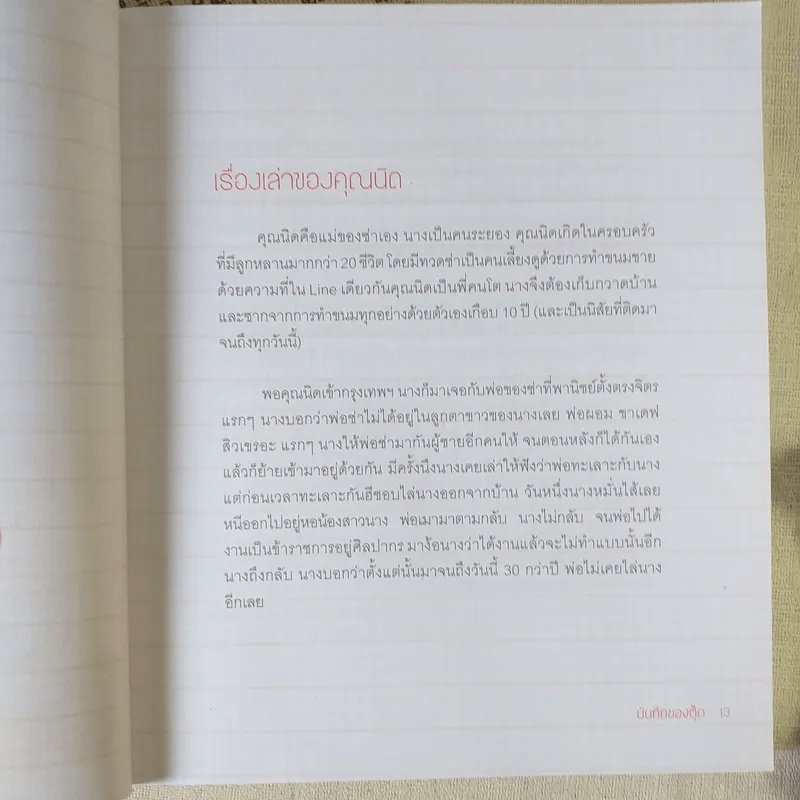 เรื่องเล่าของคุณนิด
คุณนิดคือแม่ของซ่าเอง นางเป็นคนระยอง คุณนิดเกิดในครอบครัว
ที่มีลูกหลานมากกว่า 20 ชีวิต โดยมีทวดซ่าเป็นคนเลี้ยงดูด้วยการทำขนมขาย
ด้วยความที่ใน Line เดียวกันคุณนิดเป็นพี่คนโต นางจึงต้องเก็บกวาดบ้าน
และซากจากการทำขนมทุกอย่างด้วยตัวเองเกือบ 10 ปี (และเป็นนิสัยที่ติดมา
จนถึงทุกวันนี้)
พอคุณนิดเข้ากรุงเทพฯ นางก็มาเจอกับพ่อของซ่าที่พานิชย์ตั้งตรงจิตร
แรกๆ นางบอกว่าพ่อซ่าไม่ได้อยู่ในลูกตาขาวของนางเลย พ่อผอม ขาเดฟ
สิวเขรอะ แรกๆ นางให้พ่อซ่ามากันผู้ชายอีกคนให้ จนตอนหลังก็ได้กันเอง
แล้วก็ย้ายเข้ามาอยู่ด้วยกัน มีครั้งนึงนางเคยเล่าให้ฟังว่าพ่อทะเลาะกับนาง
แต่ก่อนเวลาทะเลาะกันฮีชอบไล่นางออกจากบ้าน วันหนึ่งนางหมั่นไส้เลย
หนีออกไปอยู่หอน้องสาวนาง พ่อเมามาตามกลับ นางไม่กลับ จนพ่อไปได้
งานเป็นข้าราชการอยู่ศิลปากร มาง้อนางว่าได้งานแล้วจะไม่ทำแบบนั้นอีก
นางถึงกลับ นางบอกว่าตั้งแต่นั้นมาจนถึงวันนี้ 30 กว่าปี พ่อไม่เคยไล่นาง
อีกเลย
บันทึกของตุ๊ด 13